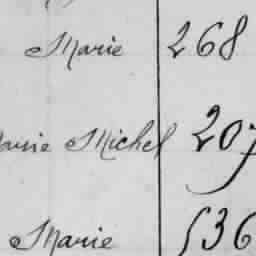 Marie 268
Marie Michel 207
Marie 536